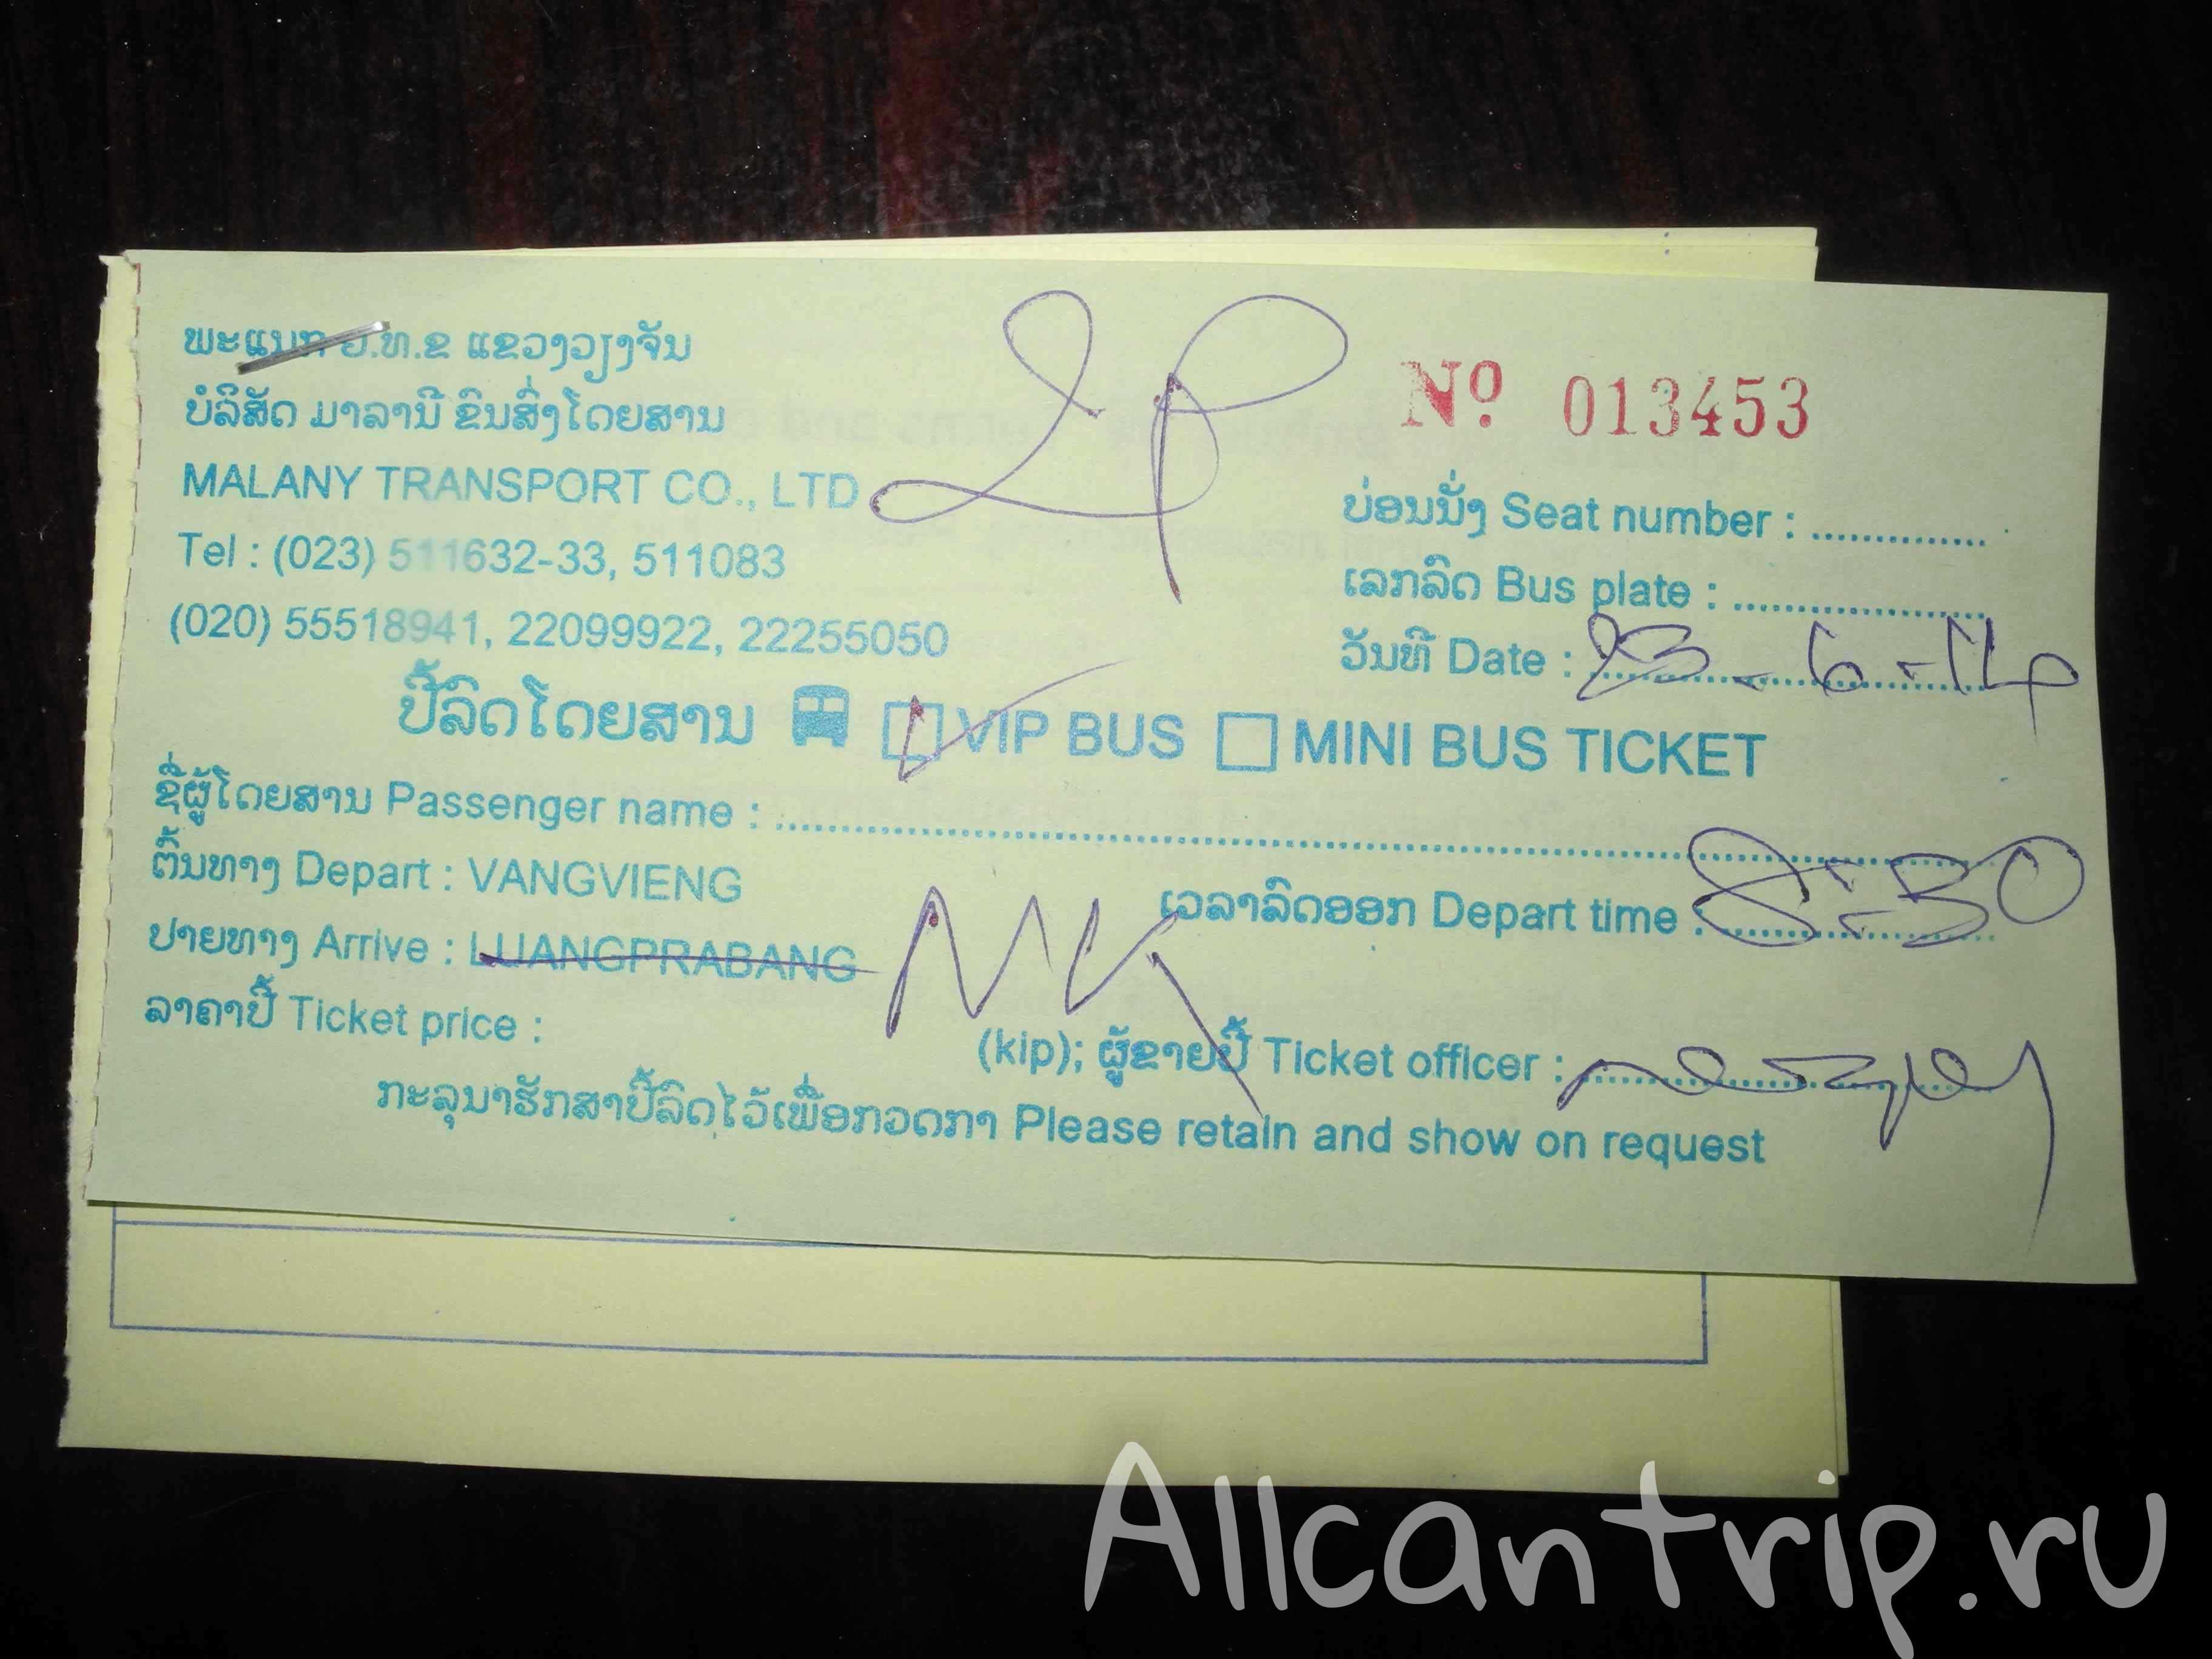 ພະແນກ ຍ.ທ.ຂ ແຂວງວຽງຈັນ
ບໍລິສັດ ມາລານີ ຂົນສົ່ງໂດຍສານ
MALANY TRANSPORT CO., LTD
2P
Nº 013453
Tel : (023) 511632-33, 511083
(020) 55518941, 22099922, 22255050
ບ່ອນນັ່ງ Seat number :
ເລກລົດ Bus plate :
ວັນທີ Date : 23-6-14
ປີ້ລົດໂດຍສານ VIP BUS MINI BUS TICKET
ຊື່ຜູ້ໂດຍສານ Passenger name :
ຕົ້ນທາງ Depart : VANGVIENG
ເວລາລົດອອກ Depart time : 8:30
ປາຍທາງ Arrive : LUANGPRABANG NK
ລາຄາປີ້ Ticket price : (kip); ຜູ້ຂາຍປີ້ Ticket officer :
ກະລຸນາຮັກສາປີ້ລົດໄວ້ເພື່ອກວດກາ Please retain and show on request
Allcantrip.ru